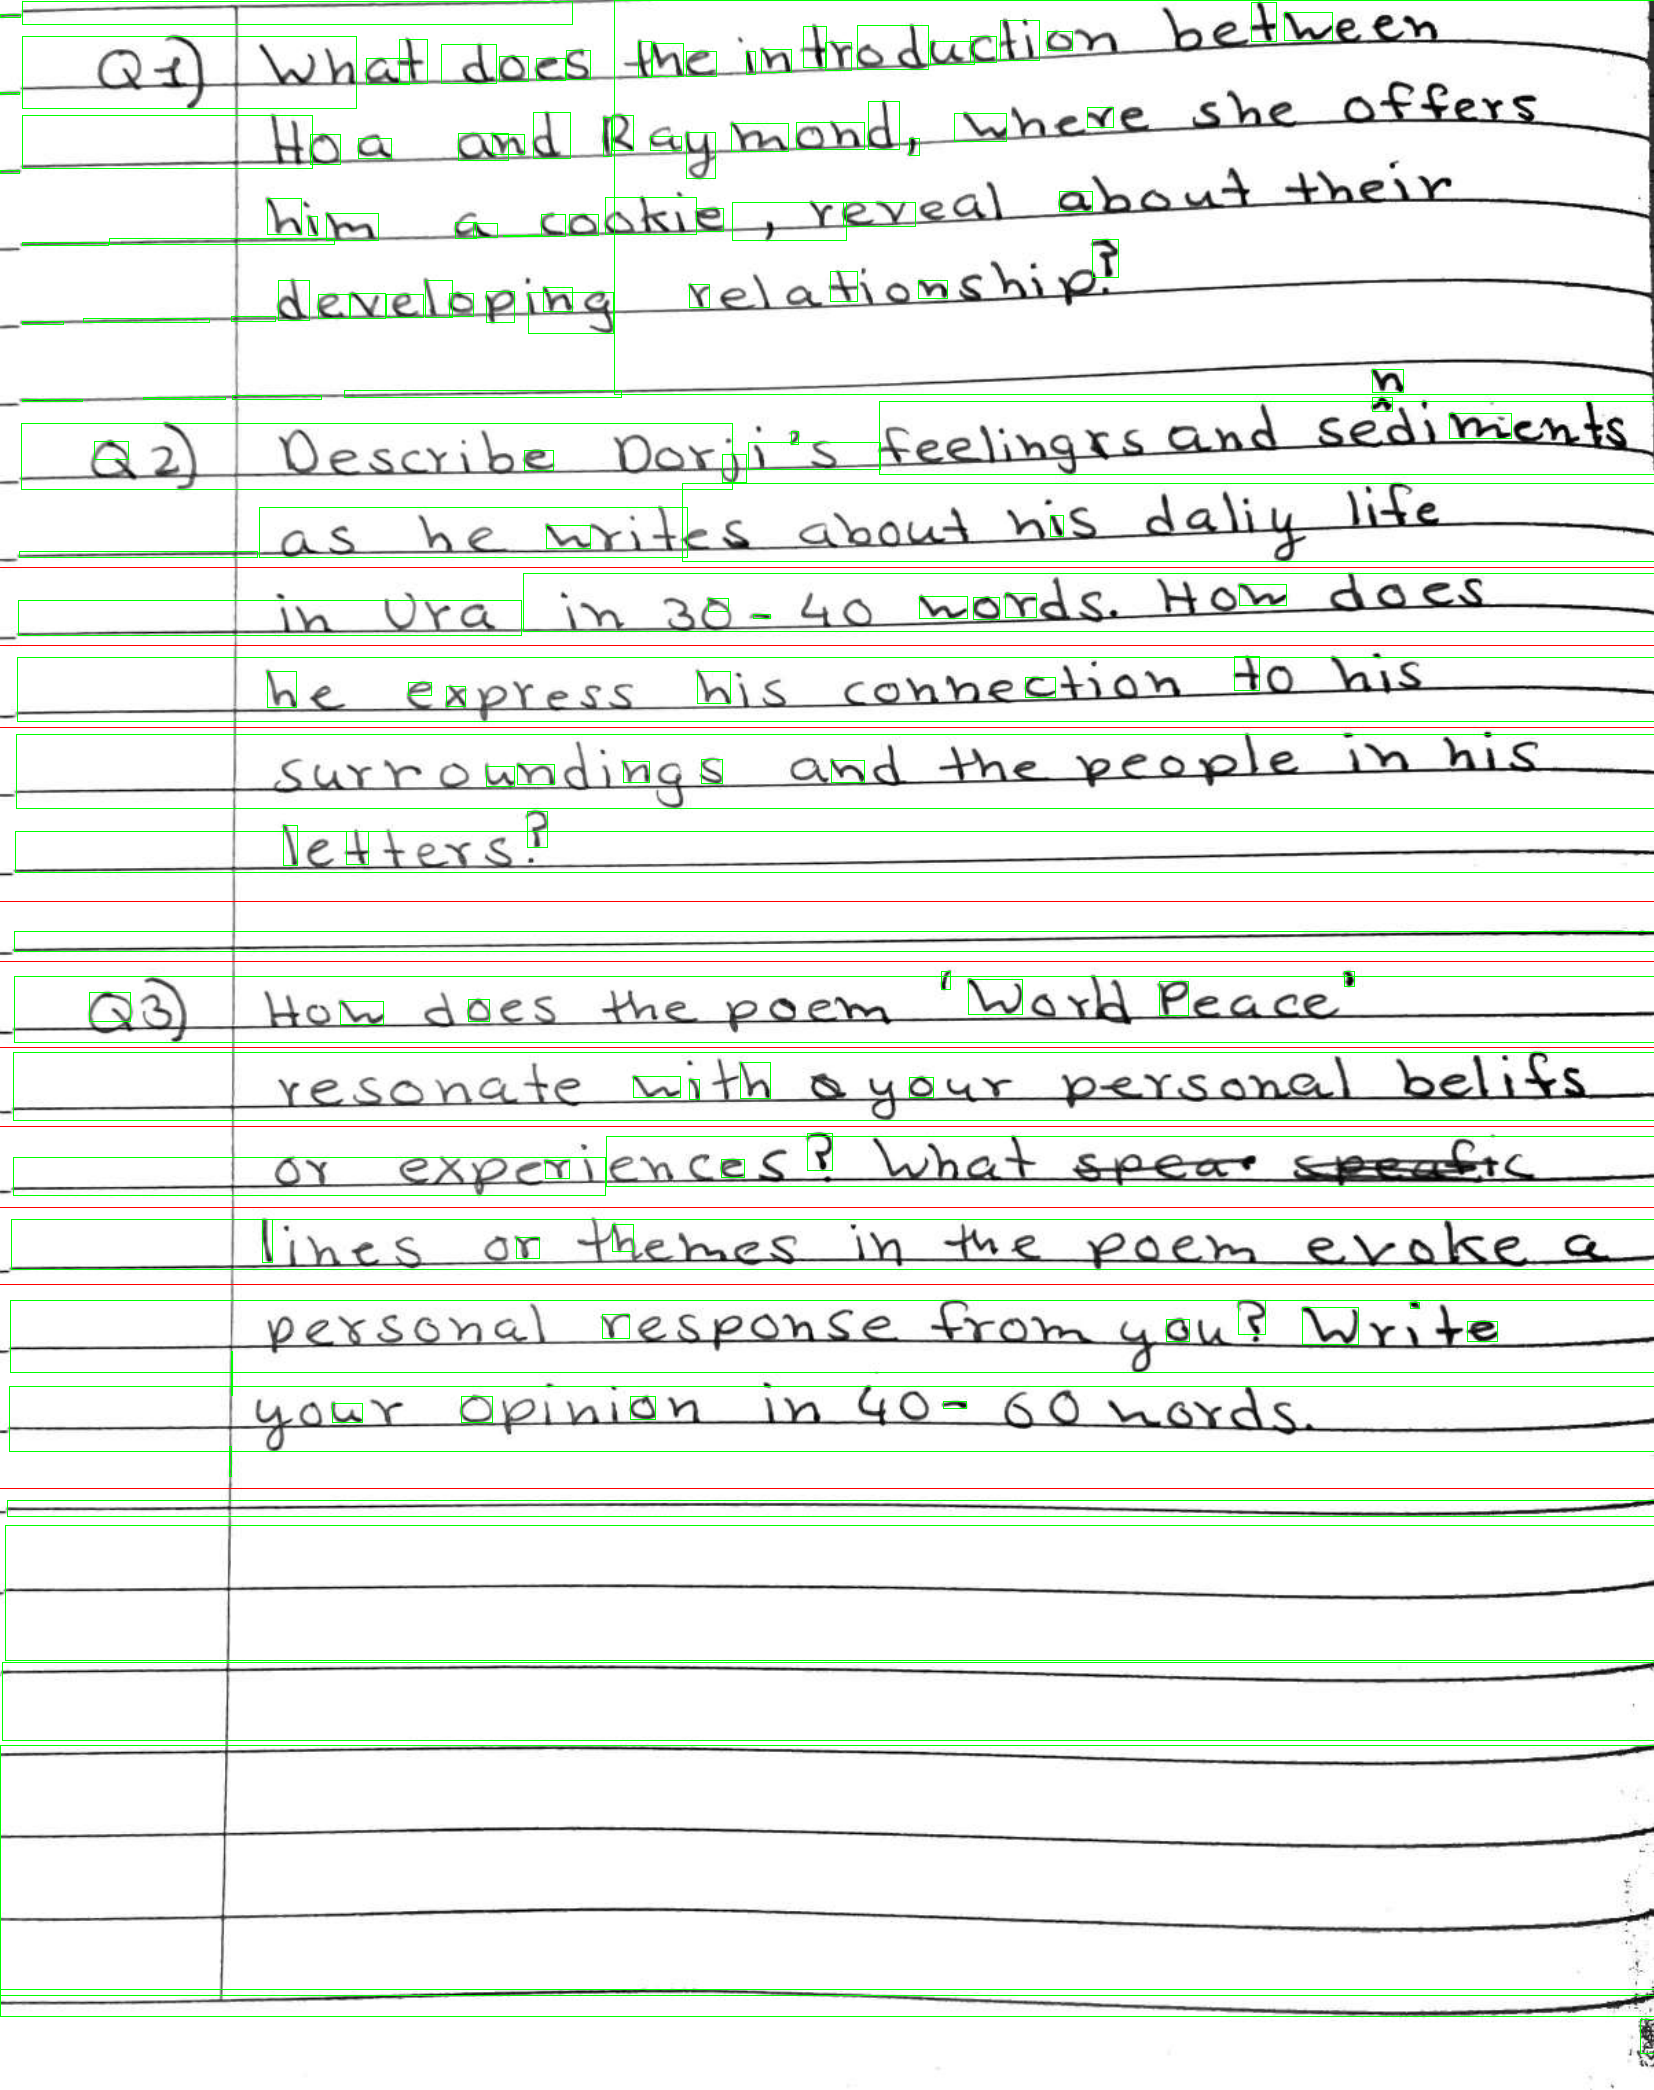 Q1) What does the introduction between
Hoa and Raymond, where she offers
him a cookie, reveal about their
developing relationship?
Q2) Describe Dorji's feelings and sendiments
as he writes about his daliy life
in Ura in 30-40 words. How does
he express his connection to his
surroundings and the people in his
letters?
Q3) How does the poem "World Peace"
resonate with your personal belifs
or experiences? What
lines or themes in the poem evoke a
personal response from you? Write
your opinion in 40-60 words.